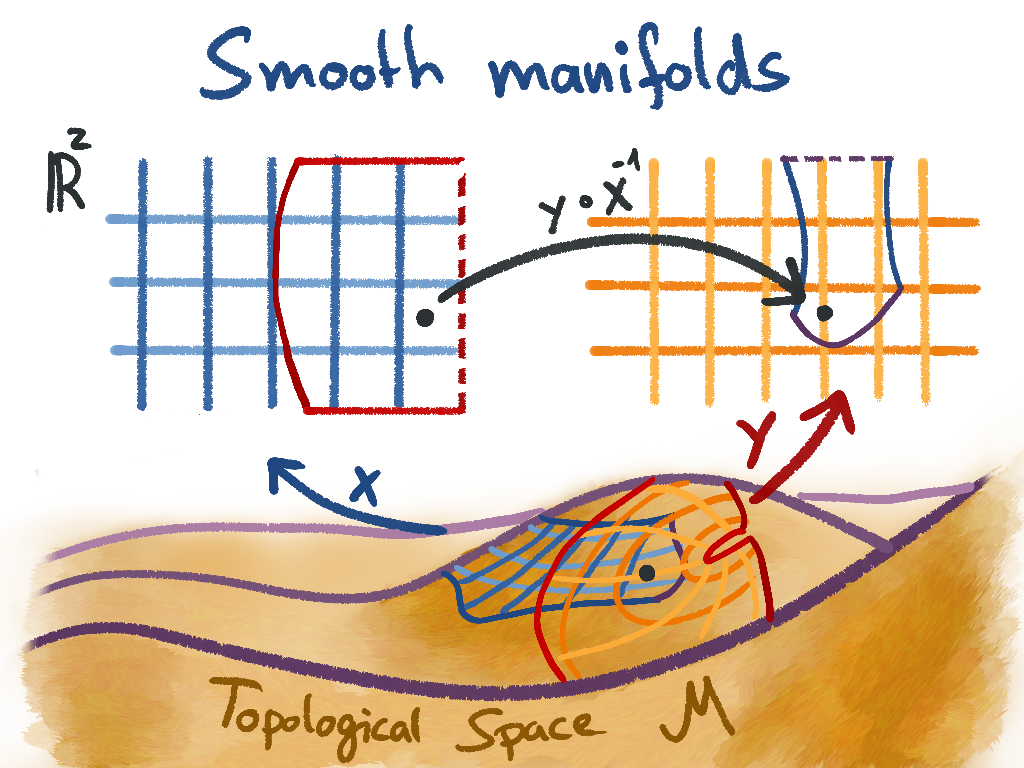 Smooth manifolds
ℝ²
y ∘ x⁻¹
x
y
Topological Space M